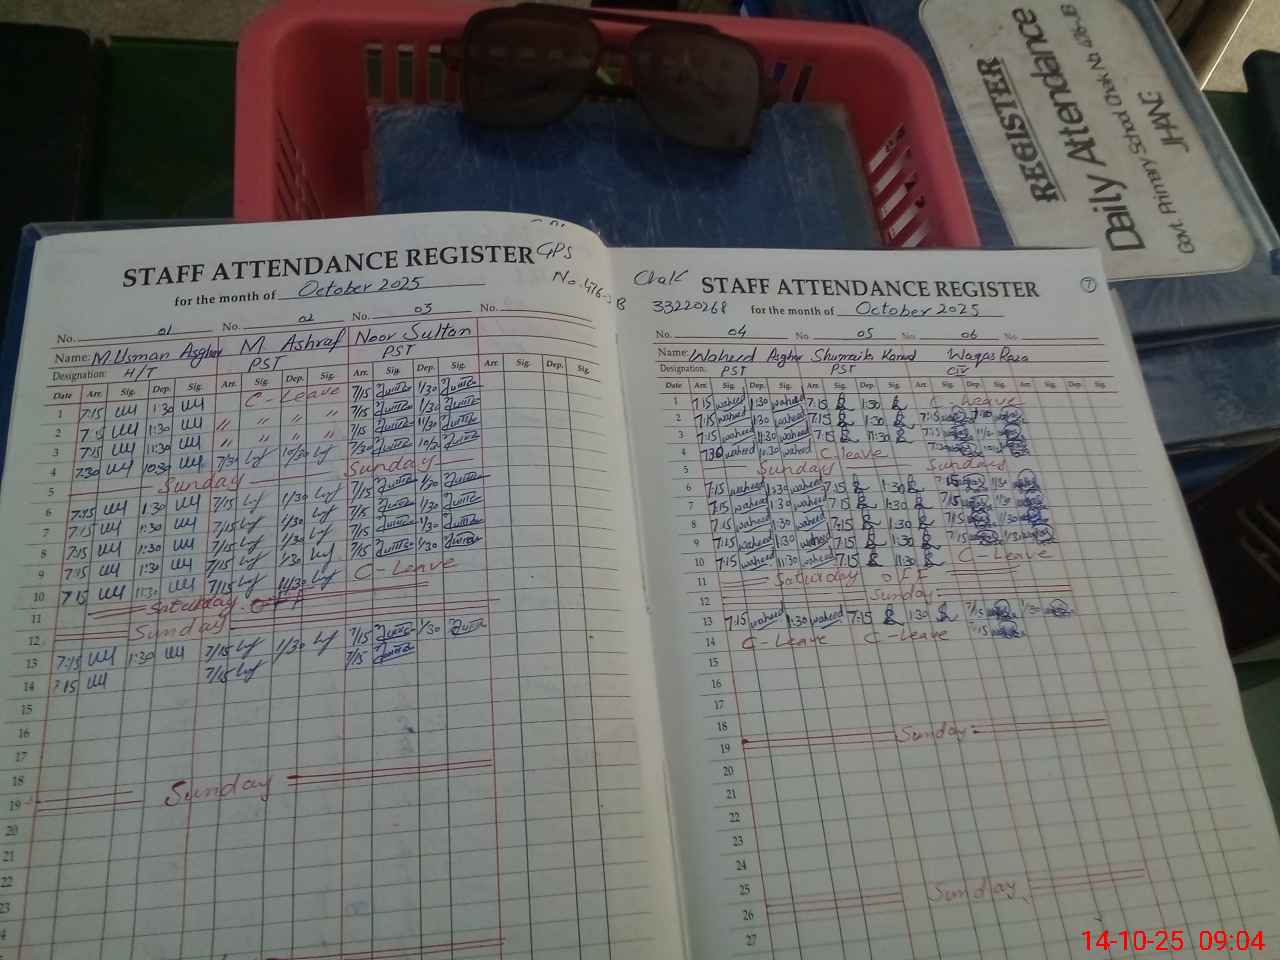 REGISTER
Daily Attendance
Govt. Primary School Chak No. 476-J.B
JHANG
STAFF ATTENDANCE REGISTER GPS
for the month of October 2025 No. 476-JB
No. 01 No. 02 No. 03 No.
Name: M. Usman Asghar M. Ashraf Noor Sultan
Designation: H/T PST PST
Date Arr. Sig. Dep. Sig. Arr. Sig. Dep. Sig. Arr. Sig. Dep. Sig. Arr. Sig. Dep. Sig.
1 7:15 1:30 C-Leave 7/15 1/30
2 7:15 1:30 " " " " 7/15 1/30
3 7:15 11:30 " " " " 7/15 11/30
4 7:30 10:30 7/30 10/30 7/30 10/30
5 Sunday Sunday
6 7:15 1:30 7/15 1/30 7/15 1/30
7 7:15 1:30 7/15 1/30 7/15 1/30
8 7:15 1:30 7/15 1/30 7/15 1/30
9 7:15 1:30 7/15 1/30 7/15 1/30
10 7:15 11:30 7/15 11/30 C-Leave
11 Saturday OFF
12 Sunday
13 7:15 1:30 7/15 1/30 7/15 1/30
14 7:15 7/15 7/15
15
16
17
18
19 Sunday
20
21
22
23
Chak STAFF ATTENDANCE REGISTER 7
33220268 for the month of October 2025
No. 04 No. 05 No. 06 No.
Name: Waheed Asghar Shumaila Kanwal Waqas Raza
Designation: PST PST CIV
Date Arr. Sig. Dep. Sig. Arr. Sig. Dep. Sig. Arr. Sig. Dep. Sig. Arr. Sig. Dep. Sig.
1 7:15 waheed 1:30 waheed 7:15 1:30 C-Leave
2 7:15 waheed 1:30 waheed 7:15 1:30 7:15 1:30
3 7:15 waheed 11:30 waheed 7:15 11:30 7:15
4 7:30 waheed 10:30 waheed C-Leave
5 Sunday Sunday
6 7:15 waheed 1:30 waheed 7:15 1:30 7:15 1:30
7 7:15 waheed 1:30 waheed 7:15 1:30 7:15 1:30
8 7:15 waheed 1:30 waheed 7:15 1:30 7:15 1:30
9 7:15 waheed 1:30 waheed 7:15 1:30 7:15 1:30
10 7:15 waheed 11:30 waheed 7:15 11:30 C-Leave
11 Saturday OFF
12 Sunday
13 7:15 waheed 1:30 waheed 7:15 1:30 7:15 1:30
14 C-Leave C-Leave 7:15
15
16
17
18
19 Sunday
20
21
22
23
24
25
26 Sunday
27
14-10-25 09:04